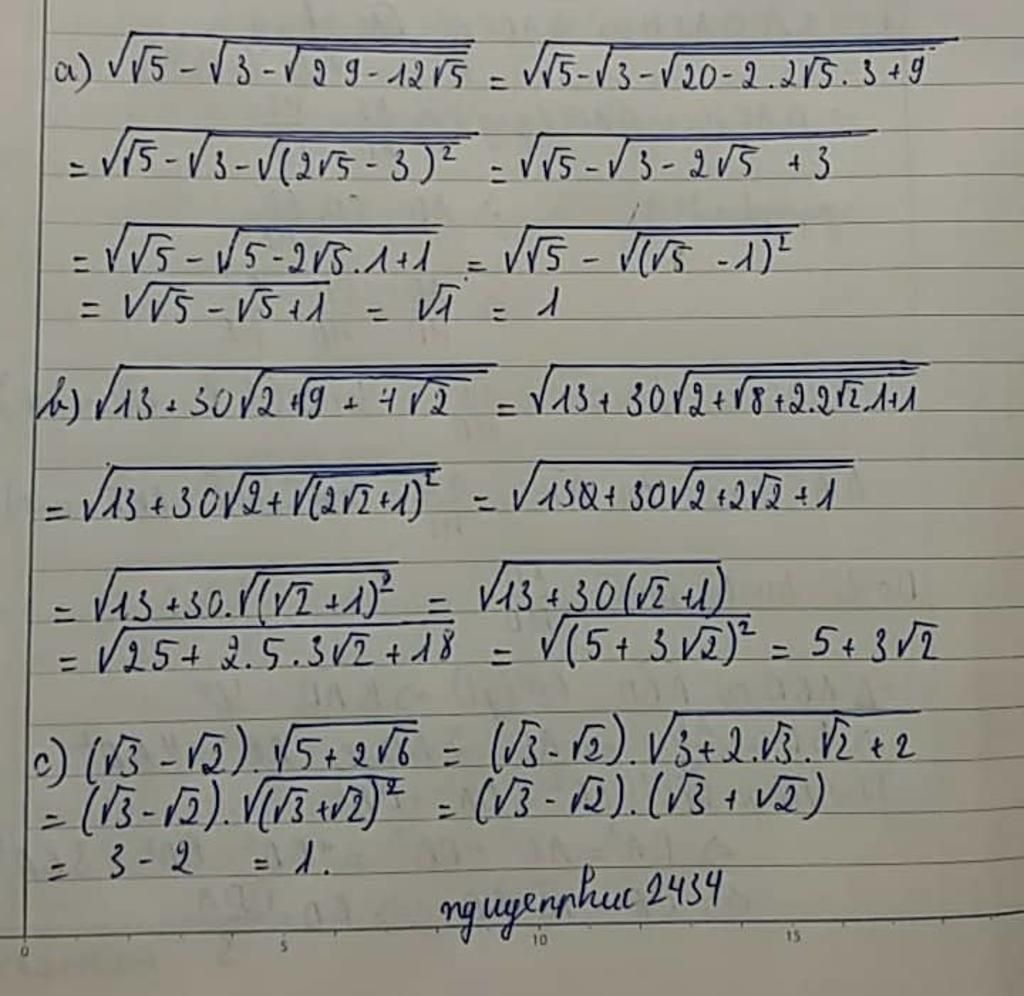 a) √(√5 - √(3 - √(29 - 12√5))) = √(√5 - √(3 - √(20 - 2.2√5.3 + 9)))
= √(√5 - √(3 - √((2√5 - 3)²))) = √(√5 - √(3 - 2√5 + 3))
= √(√5 - √(5 - 2√5.1 + 1)) = √(√5 - √((√5 - 1)²))
= √(√5 - √5 + 1) = √1 = 1
b) √(13 + 30√(2 + √(9 + 4√2))) = √(13 + 30√(2 + √(8 + 2.2√2.1 + 1)))
= √(13 + 30√(2 + √((2√2 + 1)²))) = √(13 + 30√(2 + 2√2 + 1))
= √(13 + 30.√((√2 + 1)²)) = √(13 + 30(√2 + 1))
= √(25 + 2.5.3√2 + 18) = √((5 + 3√2)²) = 5 + 3√2
c) (√3 - √2).√(5 + 2√6) = (√3 - √2).√(3 + 2.√3.√2 + 2)
= (√3 - √2).√((√3 + √2)²) = (√3 - √2).(√3 + √2)
= 3 - 2 = 1.
nguyenphuc2434
0 5 10 15